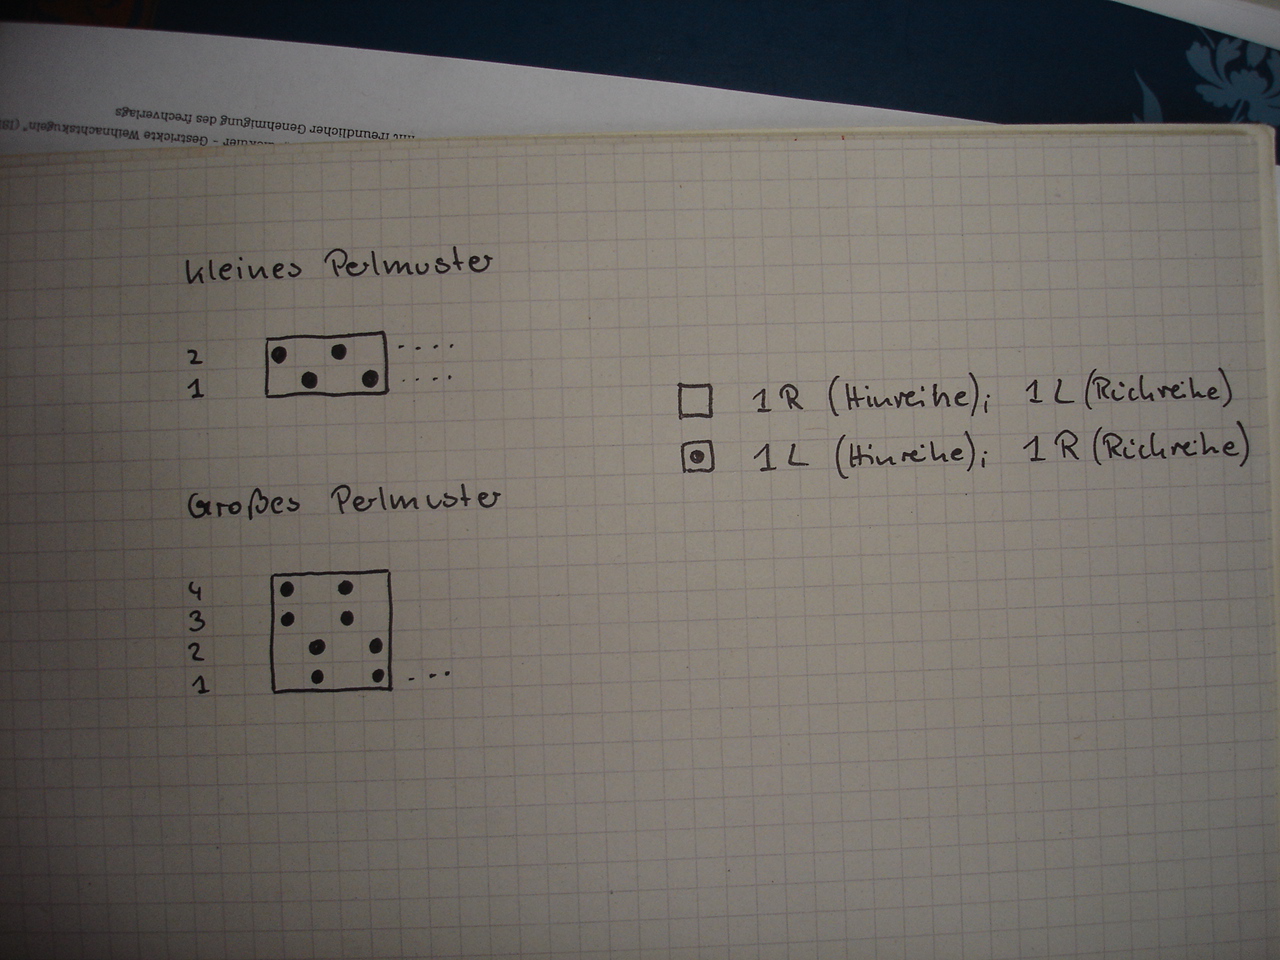 mit freundlicher Genehmigung des frechverlags
- Gestrickte Weihnachtskugeln"
kleines Perlmuster
2
1
1 R (Hinreihe); 1 L (Rückreihe)
1 L (Hinreihe); 1 R (Rückreihe)
Großes Perlmuster
4
3
2
1